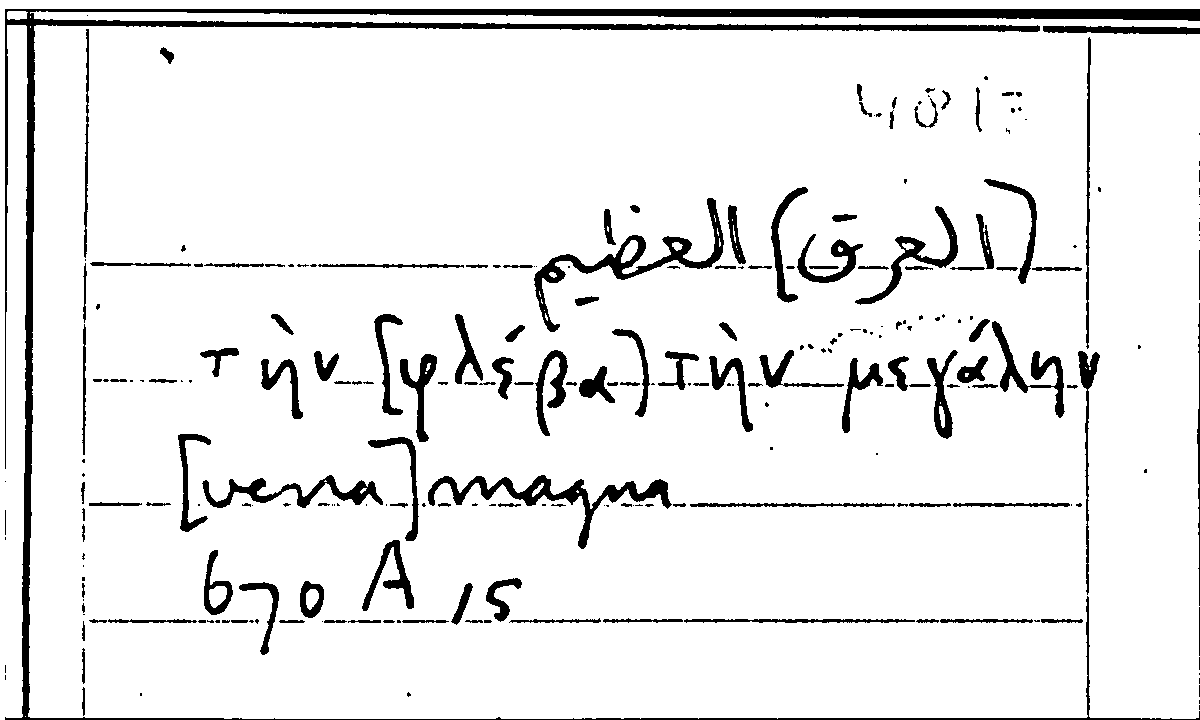 [العرق] العظيم
τὴν [φλέβα] τὴν μεγάλην
[vena] magna
670 A 15